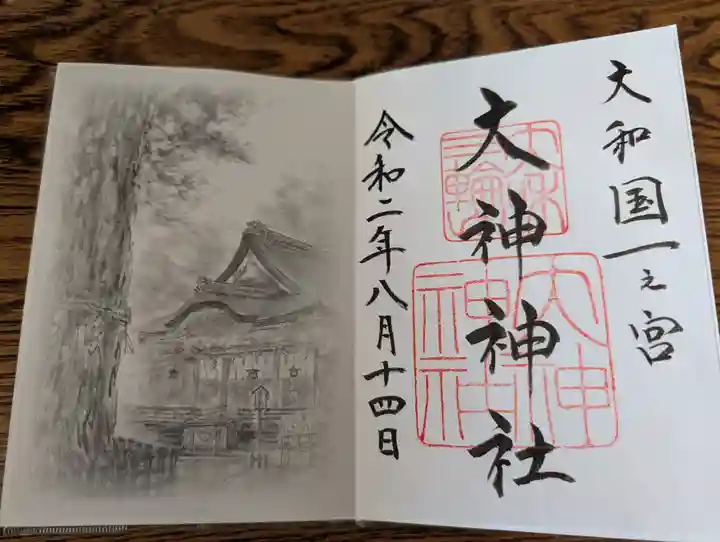 大和国一之宮
大神神社
令和二年八月十四日
三輪
大神
神社